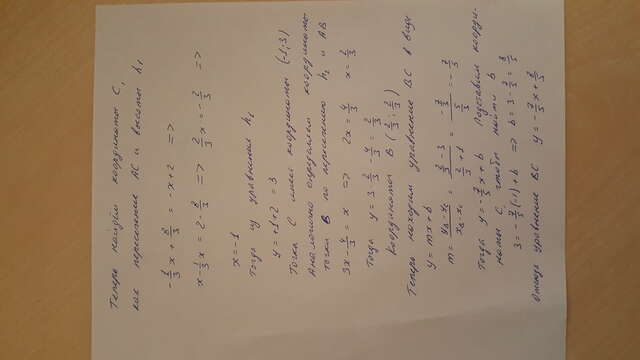 Теперь найдём координаты C,
как пересечение AC и высоты h₁
-1/3x + 8/3 = -x+2 =>
x-1/3x = 2-8/3 => 2/3x = -2/3 =>
x=-1
Тогда из уравнения h₁
y=+1+2 = 3
Точка C имеет координаты (-1;3)
Аналогично определяем координаты
точки B по пересечению h₂ и AB
3x-4/3 = x => 2x = 4/3 x = 2/3
Тогда y=3·2/3-4/3=2/3
Координаты B (2/3; 2/3)
Теперь находим уравнение BC в виде
y=mx+b
m= (y_B-y_C)/(x_B-x_C) = (2/3-3)/(2/3+1) = (-7/3)/(5/3) = -7/5
Тогда y=-7/5x+b Подставим коорди-
наты C, чтобы найти b
3=-7/5(-1)+b => b=3-7/5=8/5
Отсюда уравнение BC y=-7/5x+8/5